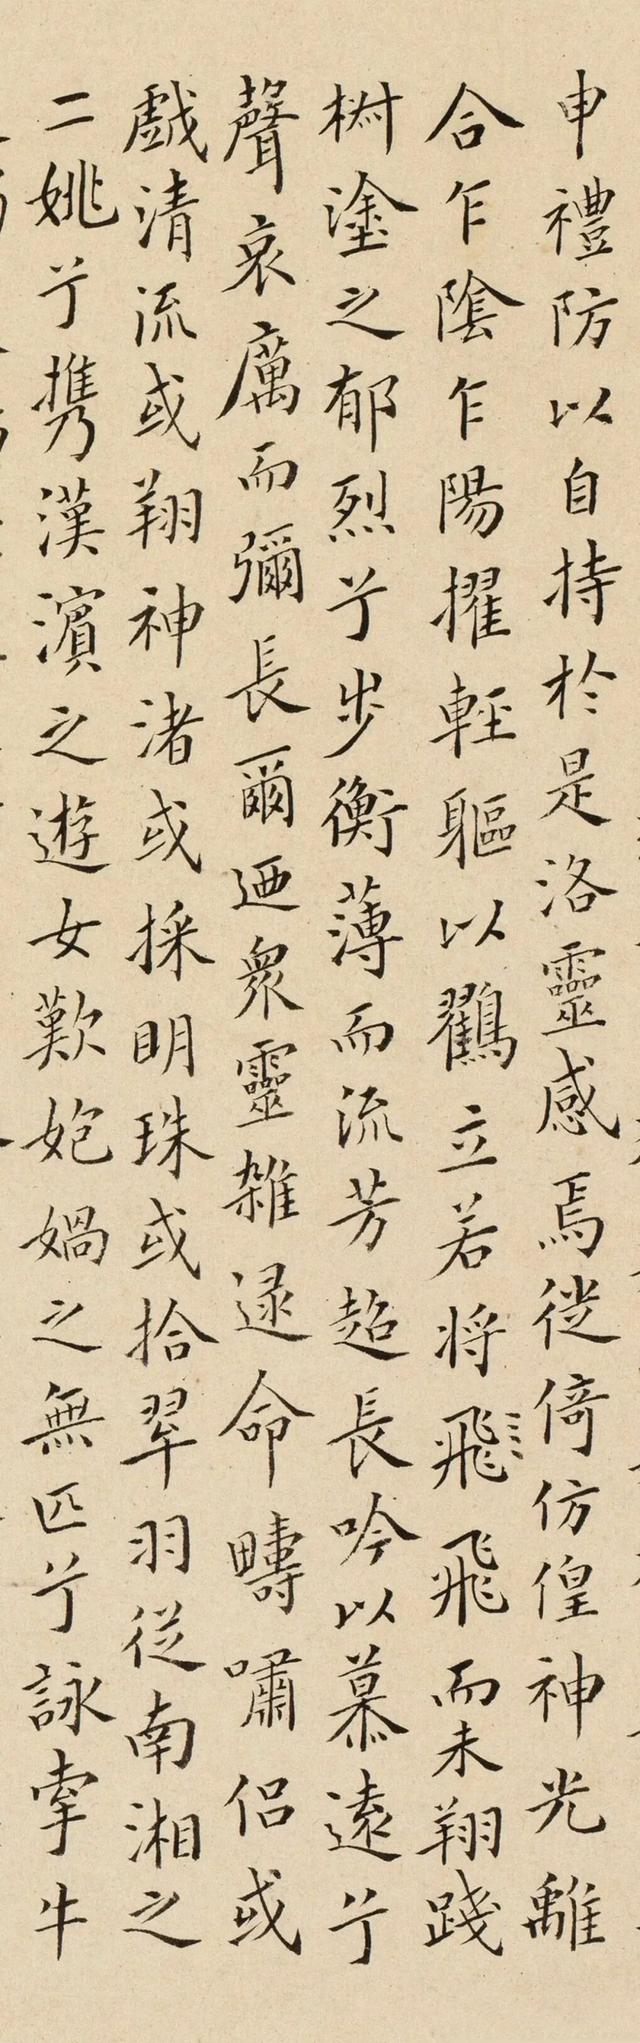 申禮防以自持於是洛靈感焉徙倚仿偟神光離
合乍陰乍陽擢輕軀以鶴立若將飛飛而未翔踐
椒塗之郁烈兮步衡薄而流芳超長吟以慕遠兮
聲哀厲而彌長爾迺衆靈雜遝命疇嘯侶或
戲清流或翔神渚或採明珠或拾翠羽從南湘之
二姚兮携漢濱之遊女歎㚿媧之無匹兮詠牽牛